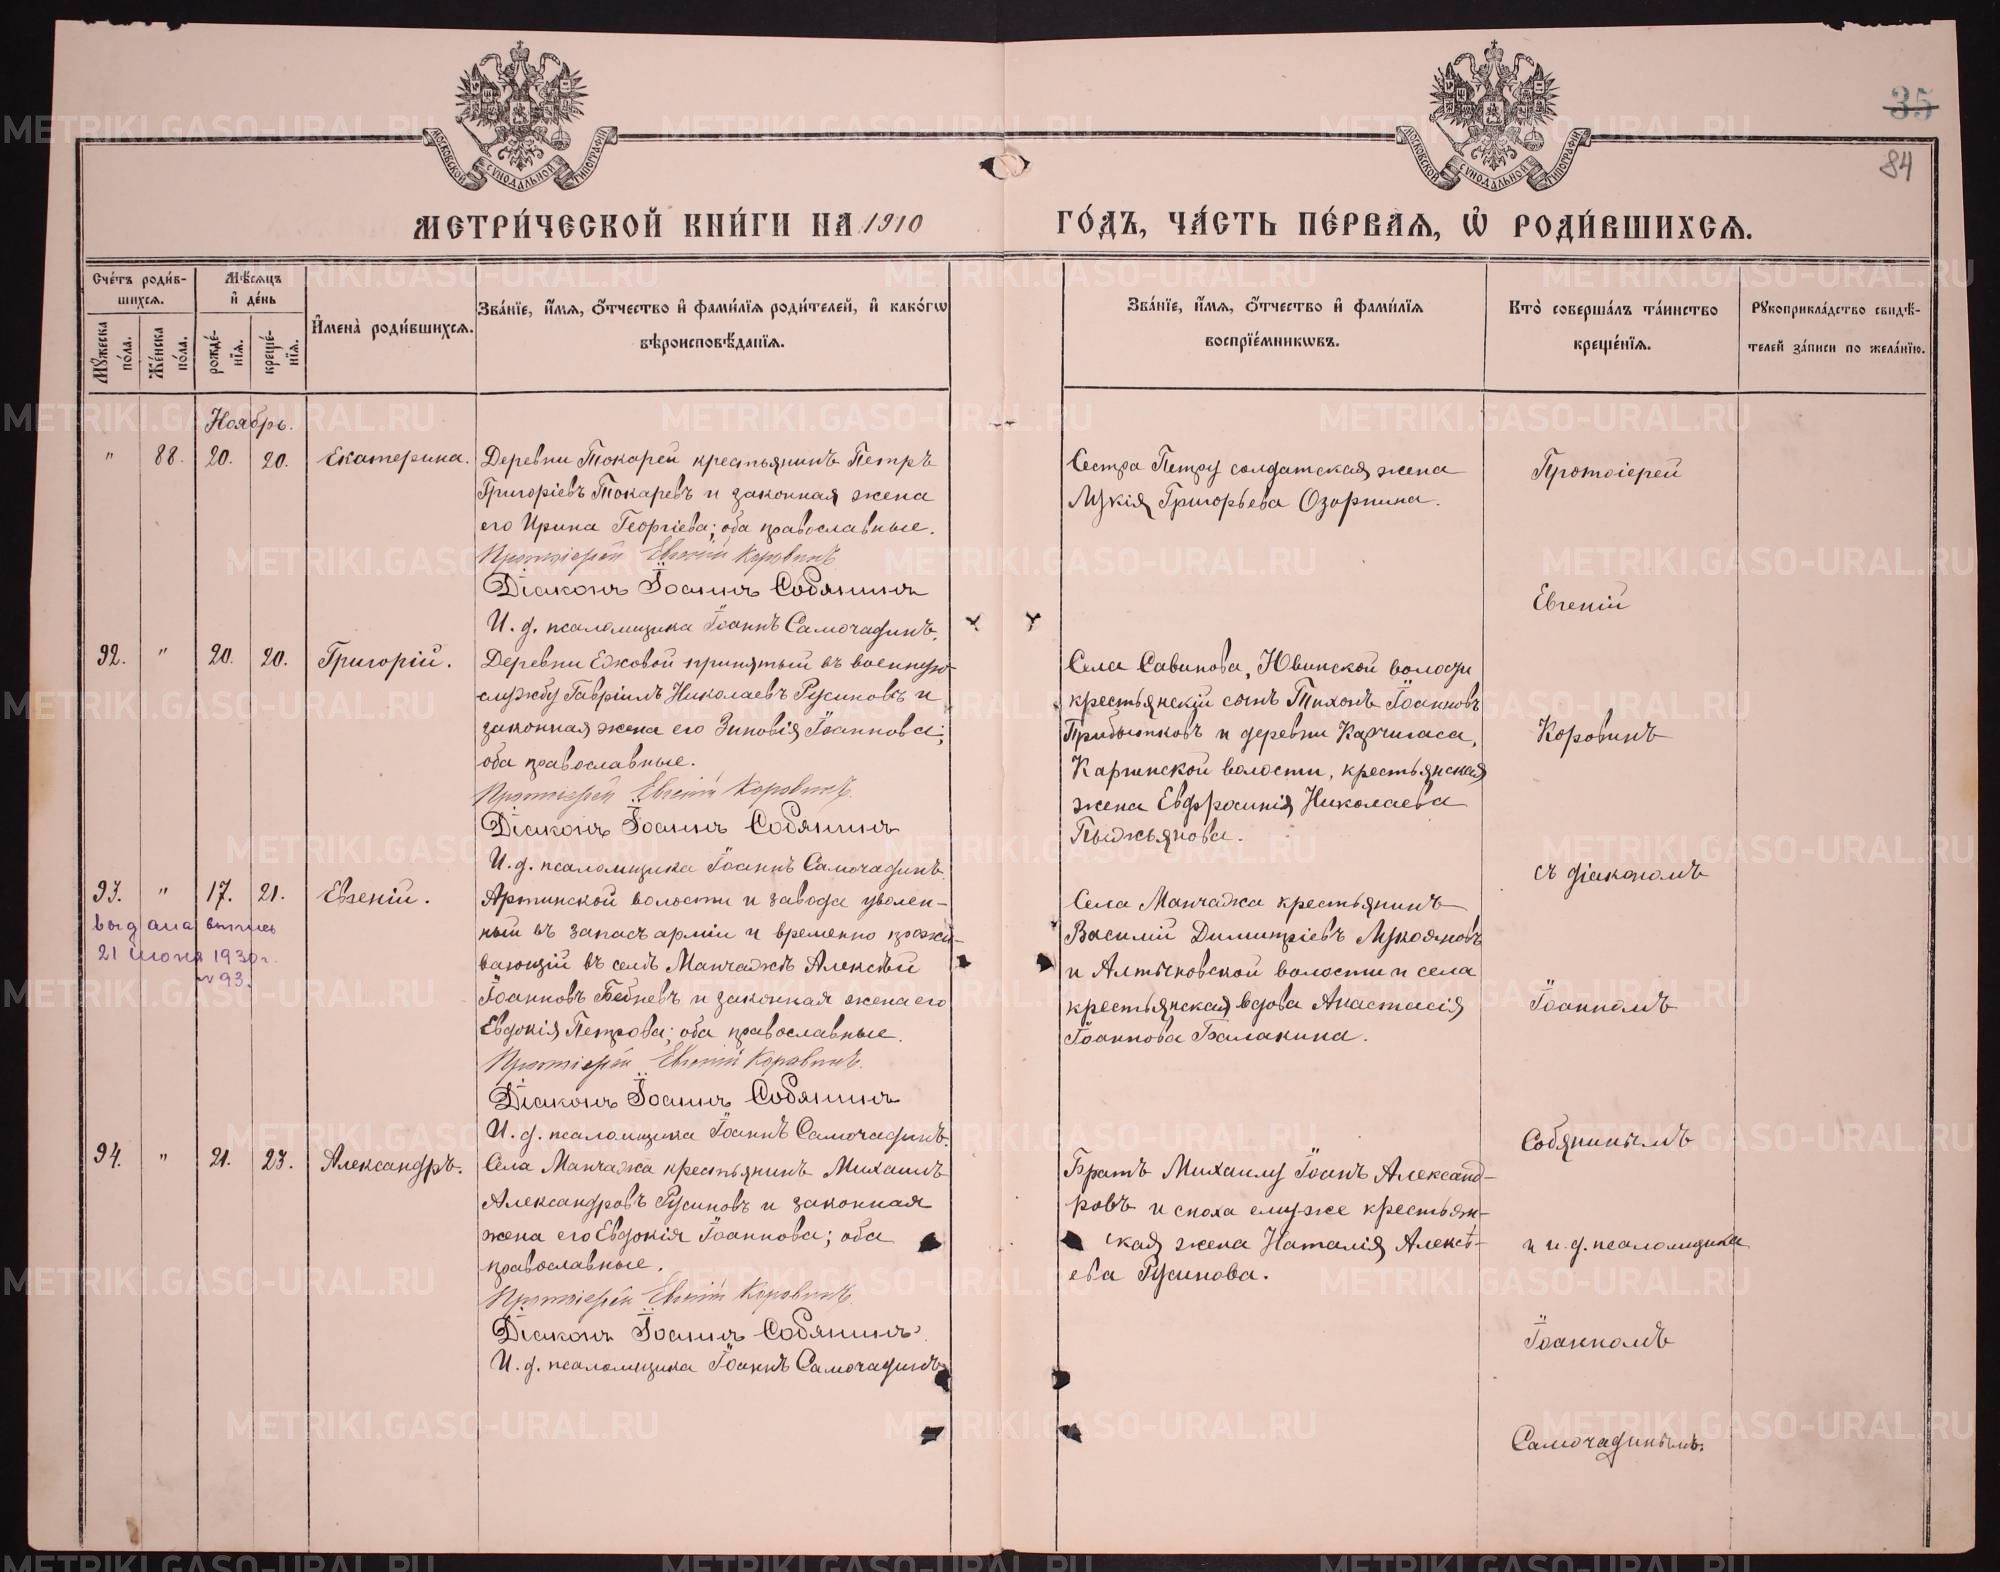 МОСКОВСКОЙ СѴНОДАЛЬНОЙ ТИПОГРАФИИ
МОСКОВСКОЙ СѴНОДАЛЬНОЙ ТИПОГРАФИИ
35
84
МЕТРИ́ЧЕСКОЙ КНИ́ГИ НА 1910 ГО́ДЪ, ЧА́СТЬ ПЕ́РВАѦ, Ѡ҆ РОДИ́ВШИХСѦ.
Сче́тъ роди́в-
шихсѧ.
Мѣ́сѧцъ
и҆ де́нь
Мꙋ́жеска
по́ла.
Же́нска
по́ла.
рожде́-
нїѧ.
креще́-
нїѧ.
И҆мена̀ роди́вшихсѧ.
Зва́нїе, и҆́мѧ, ѻ҆́тчество и҆ фами́лїѧ роди́телей, и҆ како́гѡ
вѣроисповѣ́данїѧ.
Зва́нїе, и҆́мѧ, ѻ҆́тчество и҆ фами́лїѧ
воспрїе́мникѡвъ.
Кто̀ соверша́лъ та́инство
креще́нїѧ.
Рꙋкоприкла́дство свидѣ́-
телей за́писи по жела́нїю.
Ноябрь.
" 88. 20. 20. Екатерина.
Деревни Токарей крестьянинъ Петръ
Григоріевъ Токаревъ и законная жена
его Ирина Георгіева; оба православные.
Протоіерей Евгеній Коровинъ
Діаконъ Іоаннъ Собянинъ
И. д. псаломщика Іоаннъ Самочадинъ.
Сестра Петру солдатская жена
Лукія Григорьева Озорнина.
92. " 20. 20. Григорій.
Деревни Ежовой принятый въ военную
службу Гавріилъ Николаевъ Русиновъ и
законная жена его Зиновія Іоаннова;
оба православные.
Протоіерей Евгеній Коровинъ.
Діаконъ Іоаннъ Собянинъ
И. д. псаломщика Іоаннъ Самочадинъ.
Села Савинова, Ювинской волости
крестьянскій сынъ Тихонъ Іоанновъ
Прибытковъ и деревни Карчигаса,
Каргинской волости, крестьянская
жена Евфросинія Николаева
Пыжьянова.
93. " 17. 21. Евгеній.
выдана выпись
21 июня 1930 г.
№ 93.
Артинской волости и завода уволен-
ный въ запасъ арміи и временно прожи-
вающій въ селѣ Манчажѣ Алексѣй
Іоанновъ Бебневъ и законная жена его
Евдокія Петрова; оба православные.
Протоіерей Евгеній Коровинъ.
Діаконъ Іоаннъ Собянинъ
И. д. псаломщика Іоаннъ Самочадинъ.
Села Манчажа крестьянинъ
Василій Димитріевъ Лукояновъ
и Алтыновской волости и села
крестьянская вдова Анастасія
Іоаннова Балакина.
94. " 21. 23. Александръ.
Села Манчажа крестьянинъ Михаилъ
Александровъ Русиновъ и законная
жена его Евдокія Іоаннова; оба
православные.
Протоіерей Евгеній Коровинъ.
Діаконъ Іоаннъ Собянинъ.
И. д. псаломщика Іоаннъ Самочадинъ
Братъ Михаилу Іоанъ Александ-
ровъ и сноха ему же крестьян-
ская жена Наталія Алексѣ-
ева Русинова.
Протоіерей
Евгеній
Коровинъ
съ діакономъ
Іоанномъ
Собянинымъ
и и. д. псаломщика
Іоанномъ
Самочадинымъ.
METRIKI.GASO-URAL.RU